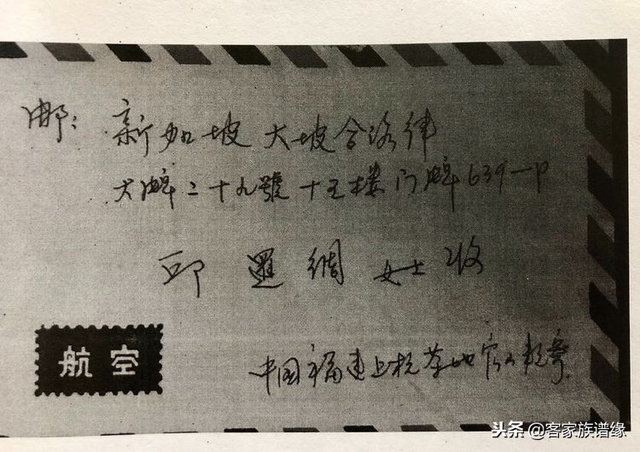 邮：新加坡 大坡合洛律
大牌二十九號十五楼门牌639一P
邱 暹 绸 女士 收
航空
中国福建上杭
头条 @客家族谱缘